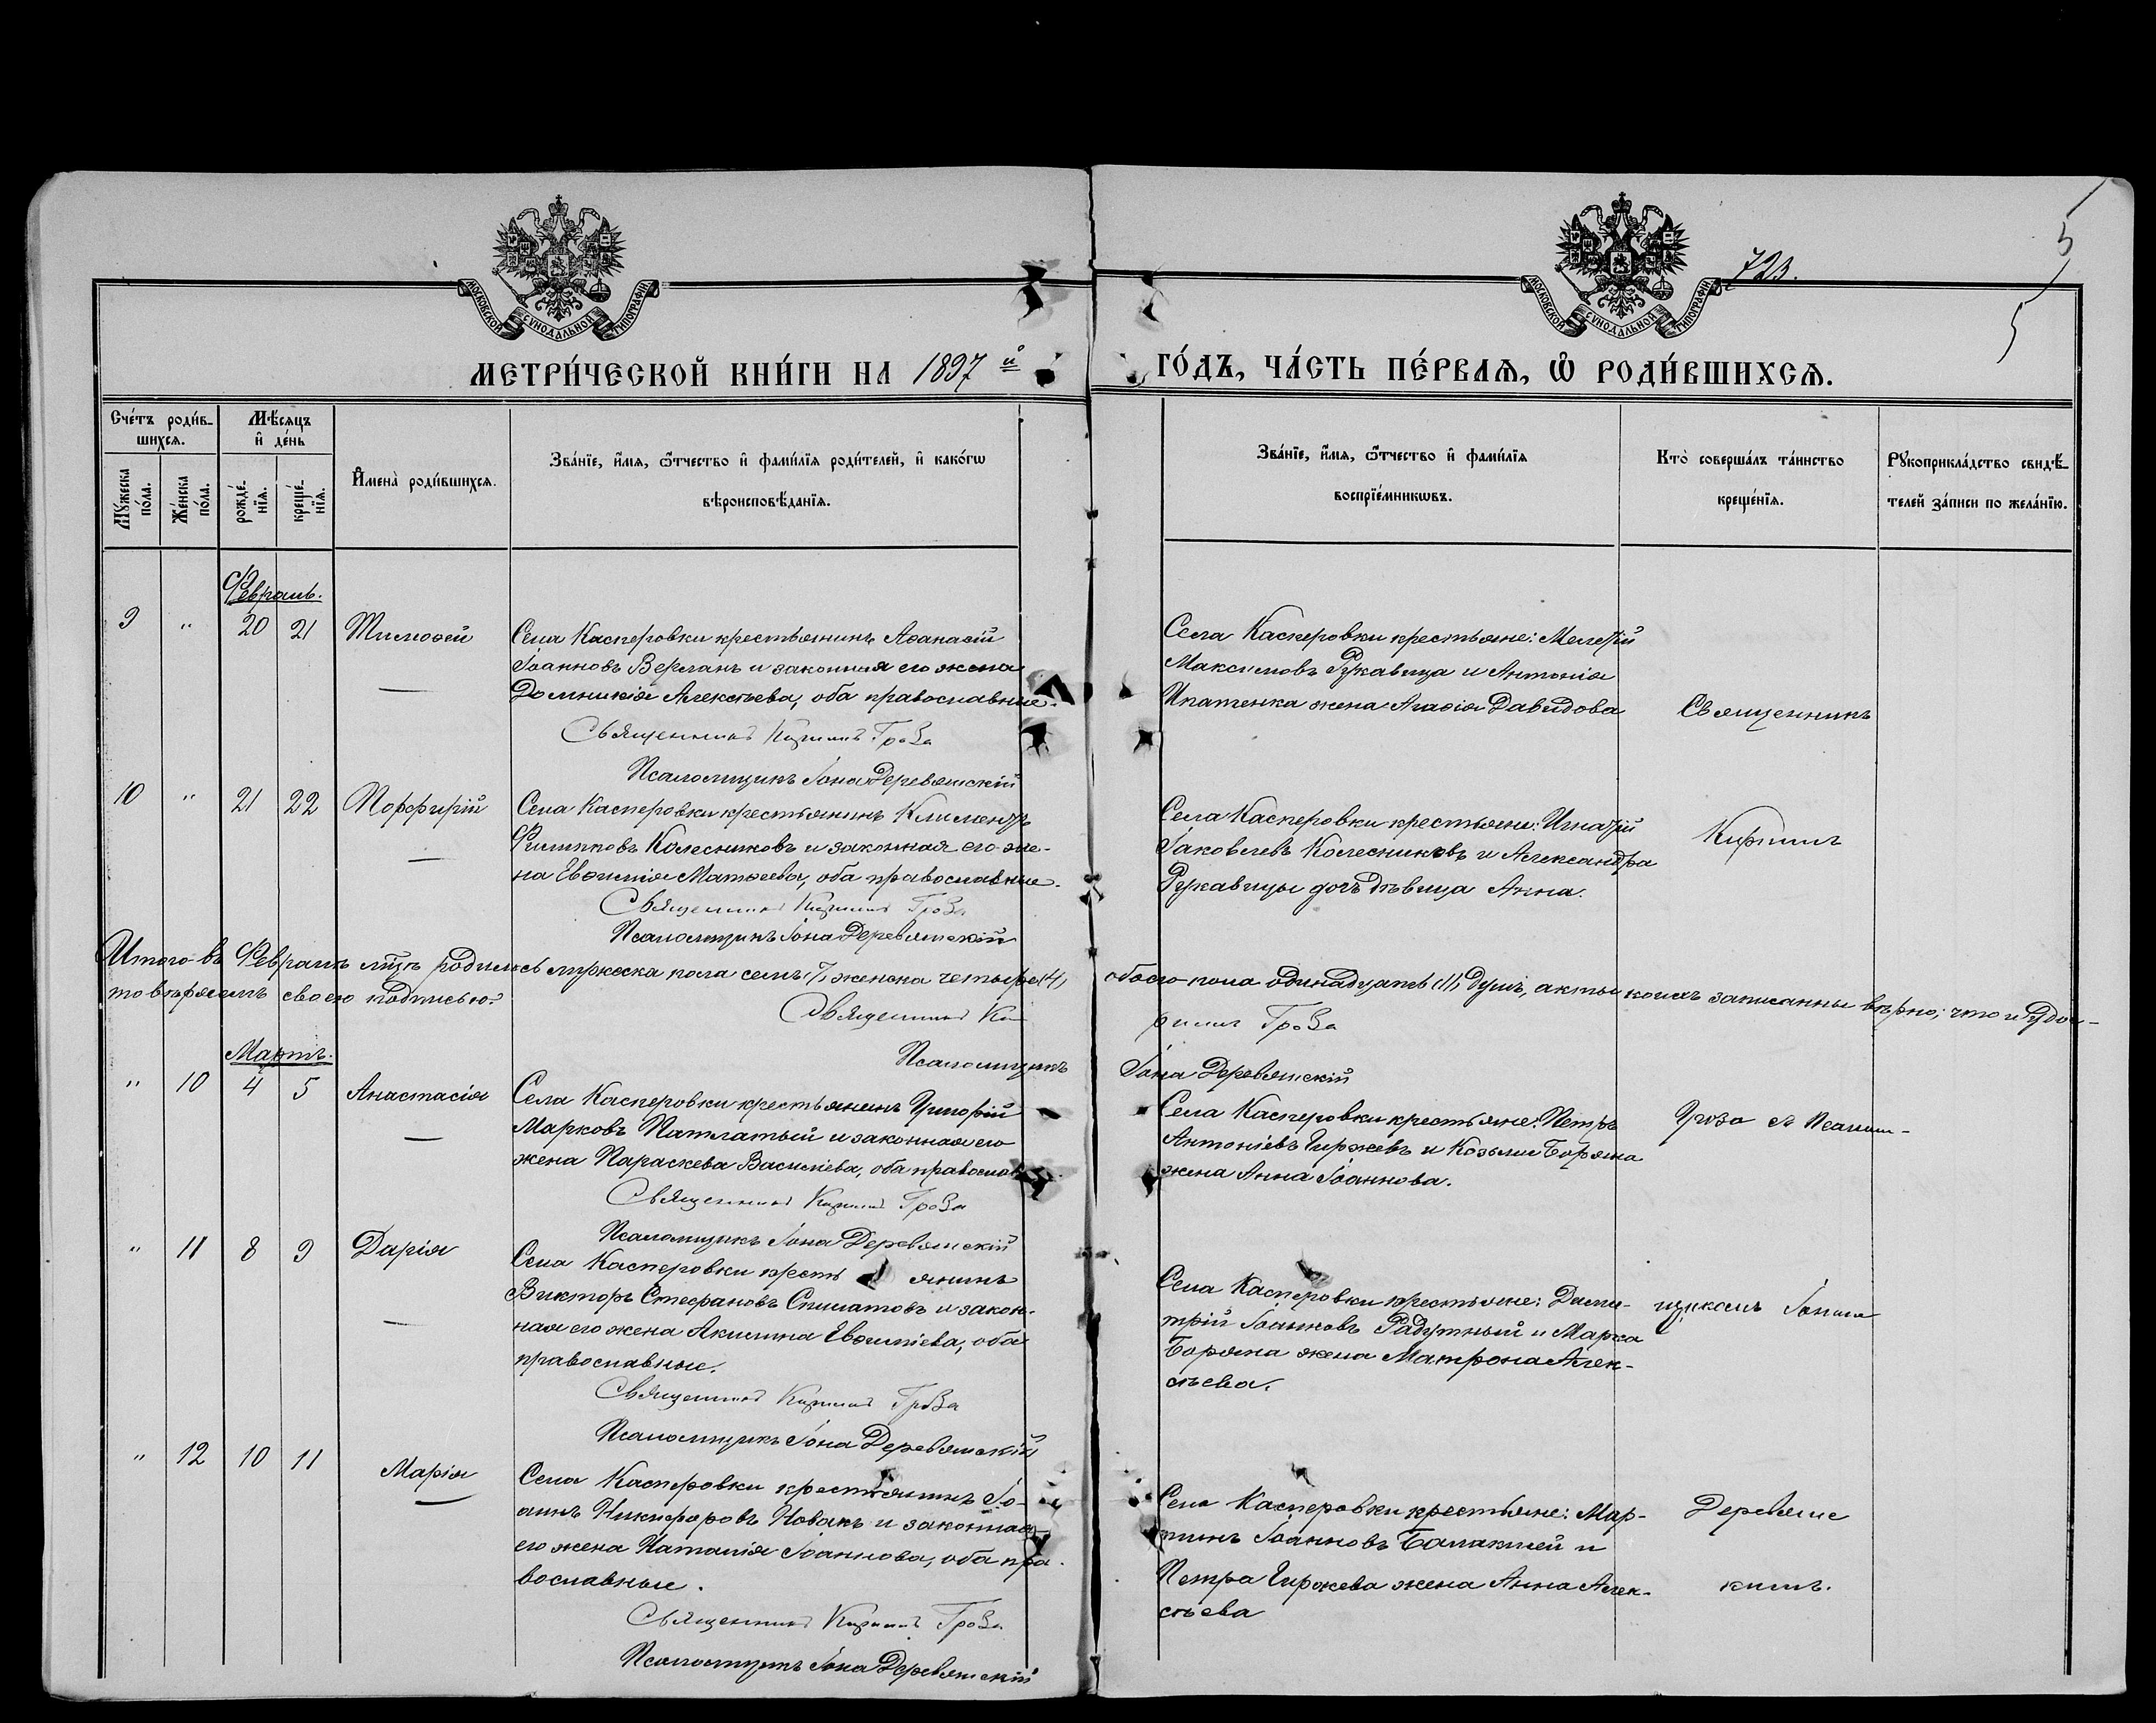 МОСКОВСКОЙ СѴНОДАЛЬНОЙ ТИПОГРАФІИ
МОСКОВСКОЙ СѴНОДАЛЬНОЙ ТИПОГРАФІИ
723.
5
5
МЕТРИ́ЧЕСКОЙ КНИ́ГИ НА 1897 й
ГО́ДЪ, ЧА́СТЬ ПЕ́РВАѦ, Ѡ҆ РОДИ́ВШИХСѦ.
Сче́тъ роди́в-
шихсѧ.
Мꙋ́жеска по́ла.
Же́нска по́ла.
Мѣ́сѧцъ
и҆ де́нь
рожде́нїѧ.
креще́нїѧ.
И҆мена̀ роди́вшихсѧ.
Зва́нїе, и҆́мѧ, ѻ҆́тчество и҆ фами́лїѧ роди́телей, и҆ како́гѡ
вѣроисповѣ́данїѧ.
Зва́нїе, и҆́мѧ, ѻ҆́тчество и҆ фами́лїѧ
воспрїе́мникѡвъ.
Кто̀ соверша́лъ та́инство
креще́нїѧ.
Рꙋкоприкла́дство свидѣ́-
телей за́писи по жела́нїю.
Февраль.
9 " 20 21 Тимоѳей
Села Касперовки крестьянинъ Аѳанасій
Іоанновъ Верланъ и законная его жена
Домникія Алексѣева, оба православные.
Священникъ Кириллъ Гроза
Псаломщикъ Іона Деревянскій
Села Касперовки крестьяне: Мелетій
Максимовъ Рукавица и Антонія
Ипатенка жена Агаѳія Давидова
Священникъ
10 " 21 22 Порфирій
Села Касперовки крестьянинъ Климентъ
Филипповъ Колесниковъ и законная его же-
на Евѳимія Матѳеева, оба православные.
Священникъ Кириллъ Гроза
Псаломщикъ Іона Деревянскій
Села Касперовки крестьяне: Игнатій
Іаковлевъ Колесниковъ и Александра
Рукавицы дочь дѣвица Анна.
Кириллъ
Итого въ Февралѣ мцѣ родилось мужеска пола семь (7), женска четыре (4), обоего пола одинадцать (11) душъ, акты коихъ записанны вѣрно; что и удос-
товѣряемъ своею подписью:
Священникъ Ки
риллъ Гроза
Псаломщикъ
Іона Деревянскій
Мартъ.
" 10 4 5 Анастасія
Села Касперовки крестьянинъ Григорій
Марковъ Патлатый и законная его
жена Параскева Василіева, оба православ.
Священникъ Кириллъ Гроза
Псаломщикъ Іона Деревянскій
Села Касперовки крестьяне: Петръ
Антоніевъ Гиржевъ и Козьмы Боряна
жена Анна Іоаннова.
Гроза съ Псалом-
" 11 8 9 Дарія
Села Касперовки кресть янинъ
Викторъ Стефановъ Спилатовъ и закон-
ная его жена Акилина Евѳиміева, оба
православные.
Священникъ Кириллъ Гроза
Псаломщикъ Іона Деревянскій
Села Касперовки крестьяне: Дими-
трій Іоанновъ Радутный и Марка
Боряна жена Матрона Алек-
сѣева.
щикомъ Іоною
" 12 10 11 Марія
Села Касперовки крестьянинъ Іо-
аннъ Никифоровъ Новакъ и законная
его жена Наталія Іоаннова, оба пра-
вославные.
Священникъ Кириллъ Гроза
Псаломщикъ Іона Деревянскій
Села Касперовки крестьяне: Мар-
тинъ Іоанновъ Балаклей и
Петра Гиржева жена Анна Алек-
сѣева
Деревянс
кимъ.